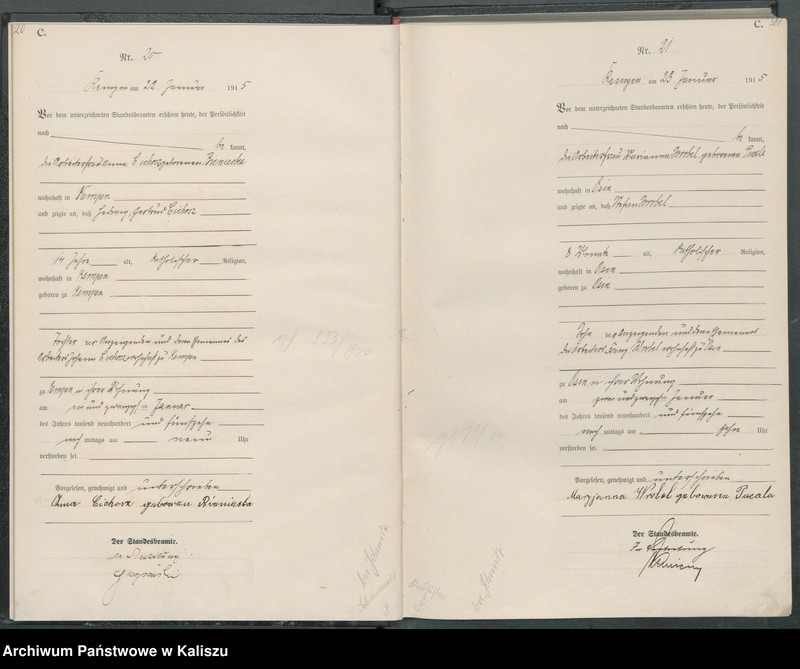 20
C.
Nr. 20
Kempen am 22 Januar 1915
Vor dem unterzeichneten Standesbeamten erschien heute, der Persönlichkeit
nach
be kannt,
die Arbeiterfrau Anna Cichosz geborenen
wohnhaft in Kempen
und zeigte an, daß Hedwig Gertrud Cichosz
14 Jahre alt, katholischer Religion,
wohnhaft in Kempen
geboren zu Kempen
Tochter der Anzeigenden und deren Ehemannes des
Arbeiters Johann Cichosz wohnhaft zu Kempen
zu Kempen in ihrer Wohnung
am ein und zwanzigsten Januar
des Jahres tausend neunhundert und fünfzehn
nach mittags um neun Uhr
verstorben sei.
Vorgelesen, genehmigt und unterschrieben
Anna Cichosz geborenen
Der Standesbeamte.
In Vertretung
C. 21
Nr. 21
Kempen am 23 Januar 1915
Vor dem unterzeichneten Standesbeamten erschien heute, der Persönlichkeit
nach
be kannt,
die Arbeiterfrau Marianna Wrobel geborenen Pucala
wohnhaft in Osin
und zeigte an, daß Stefan Wrobel
8 Monate alt, katholischer Religion,
wohnhaft in Osin
geboren zu Osin
Sohn der Anzeigenden und deren Ehemannes
des Arbeiters Franz Wrobel wohnhaft zu Osin
zu Osin in ihrer Wohnung
am zwei und zwanzigsten Januar
des Jahres tausend neunhundert und fünfzehn
nach mittags um zehn Uhr
verstorben sei.
Vorgelesen, genehmigt und unterschrieben
Maryjanna Wrobel geborenna Pucala
Der Standesbeamte.
In Vertretung
Archiwum Państwowe w Kaliszu